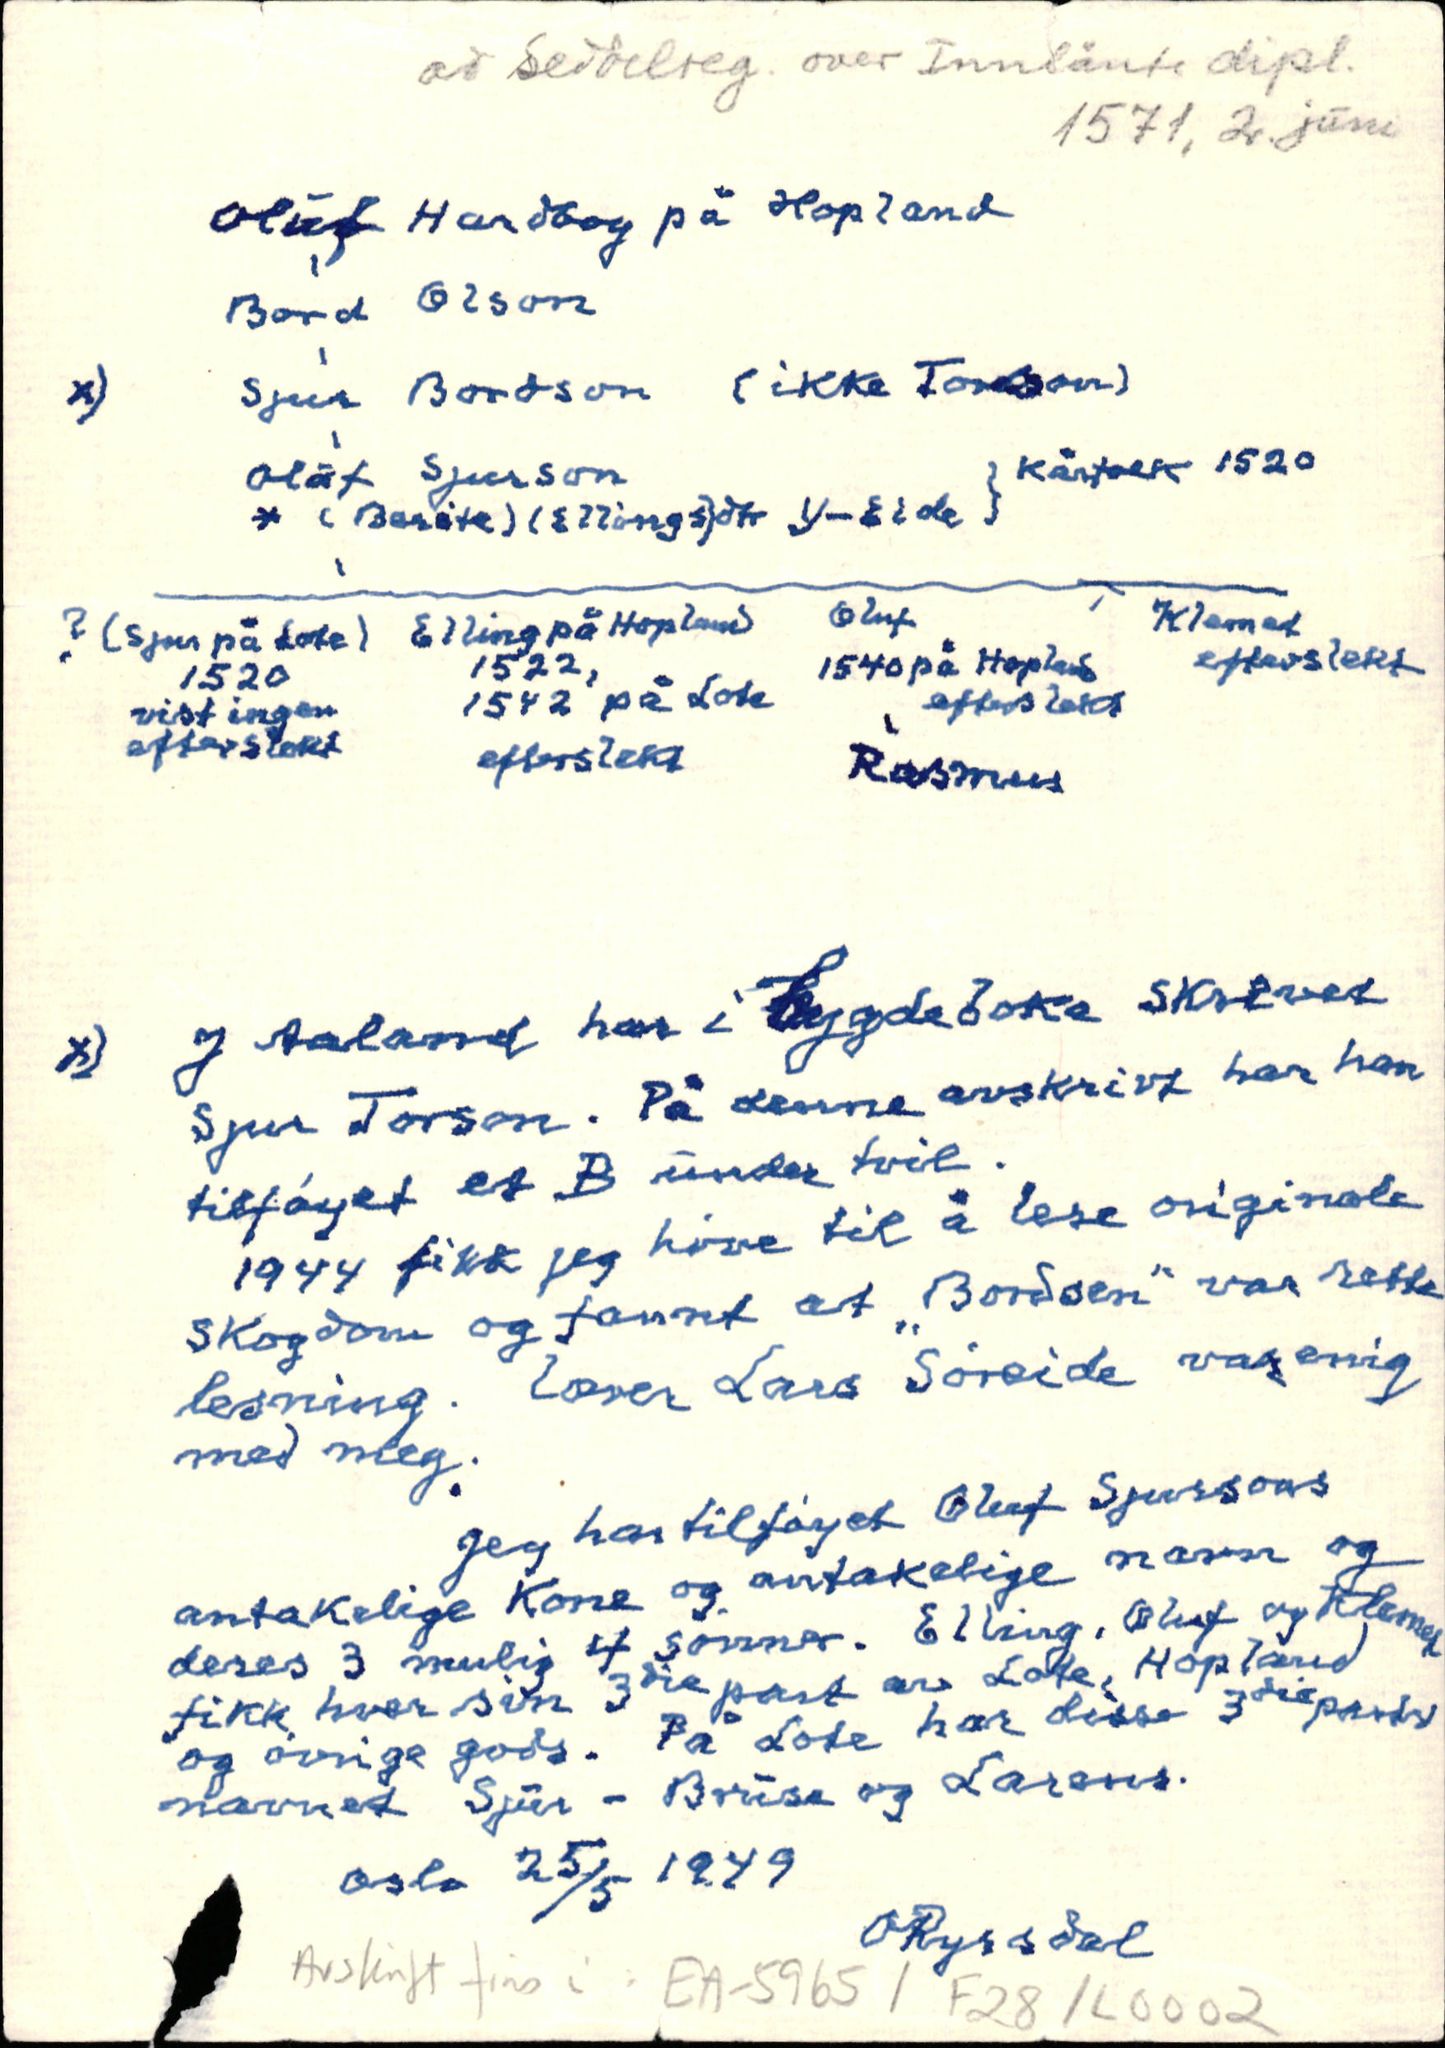 ad Seddelreg. over Innlånte dipl.
1571, 2. juni
Oluf Hardbog på Hopland
Bård Olson
x) Sjur Bordson (ikke Torson)
Oluf Sjurson
* (Berite) (Ellings)dtr y-Eide } Kårfolk 1520
? (Sjur på Lote) Elling på Hopland Oluf Klemet
1520 1522, 1540 på Hopland efterslekt
vist ingen 1542 på Lote efterslekt
efterslekt efterslekt Rasmus
x) J Aaland har i bygdeboka skrevet
Sjur Torson. På denne avskrivt har han
tilføyet et B under tvil.
1944 fikk jeg høve til å lese originale
skogdom og fannt at "Bordsen" var rette
lesning. Lærer Lars Søreide var enig
med meg.
Jeg har tilføyet Oluf Sjursons
antakelige Kone og antakelige navn og
deres 3 mulig 4 sønner. Elling, Oluf og Klemet
fikk hver sin 3die part av Lote, Hopland
og øvrige gods. På Lote har disse 3die parter
navnet Sjur - Bruse og Larens.
Oslo 25/5 1949
O Ryssdal
Avskrift fins i : EA-5965 / F28 / L0002